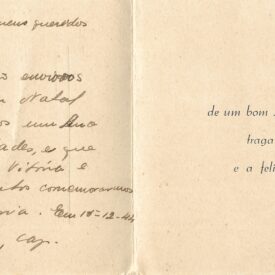 meus queridos
envio
Natal
um Ano
ades, e que
Vitória e
comemoraremos
ria. Em 18-12-44
, cap.
de um bom
traga
e a feli